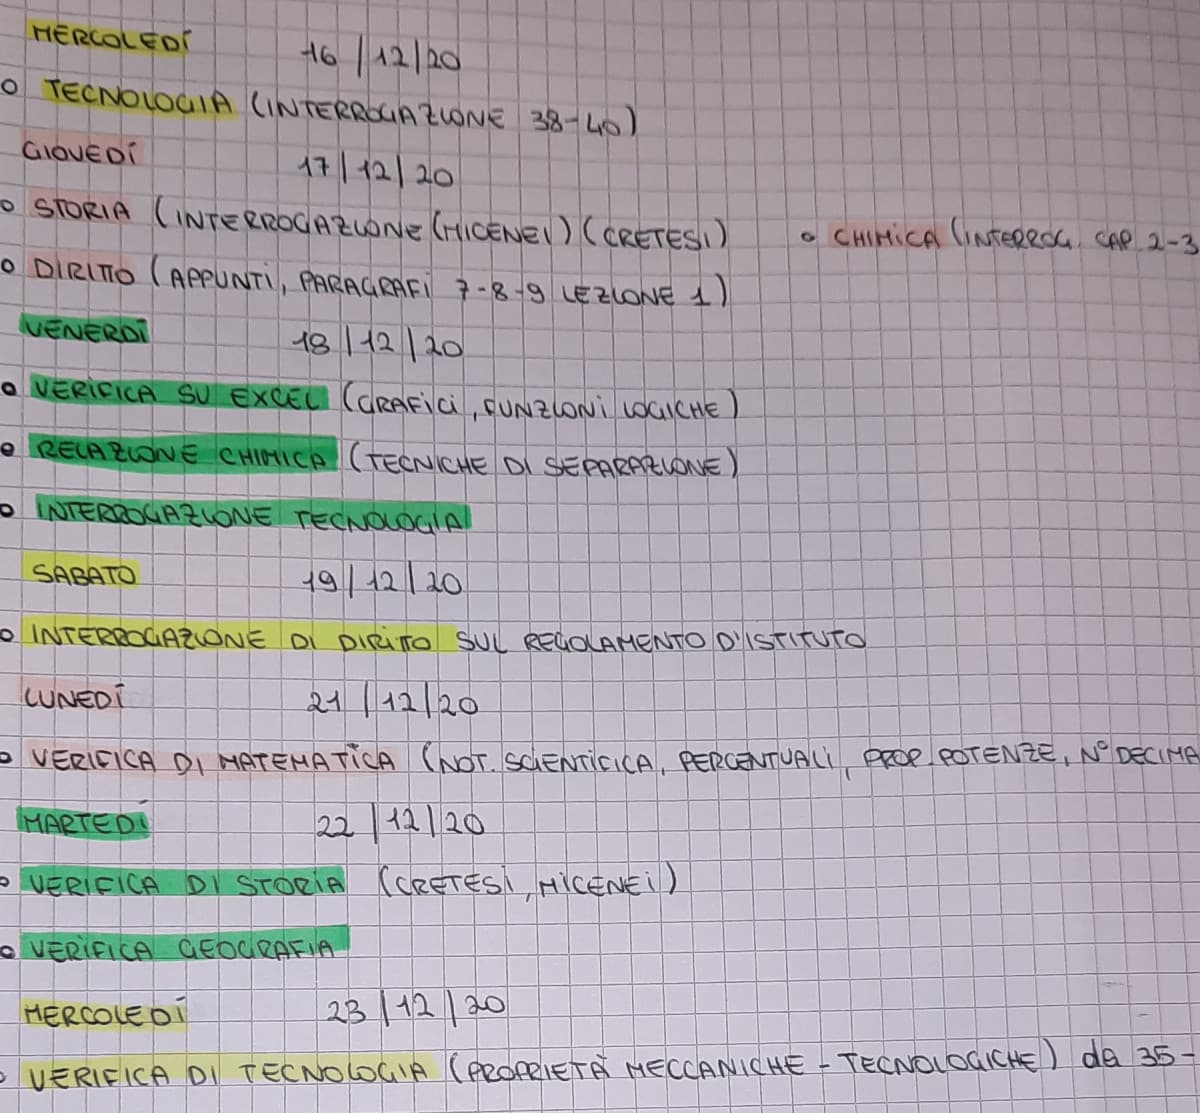 MERCOLEDÍ 16/12/20
TECNOLOGIA (INTERROGAZIONE 38-40)
GIOVEDÍ 17/12/20
STORIA (INTERROGAZIONE (MICENEI) (CRETESI)
CHIMICA (INTERROG. CAP 2-3
DIRITTO (APPUNTI, PARAGRAFI 7-8-9 LEZIONE 1)
VENERDÌ 18/12/20
VERIFICA SU EXCEL (GRAFICI, FUNZIONI LOGICHE)
RELAZIONE CHIMICA (TECNICHE DI SEPARAZIONE)
INTERROGAZIONE TECNOLOGIA
SABATO 19/12/20
INTERROGAZIONE DI DIRITTO SUL REGOLAMENTO D'ISTITUTO
LUNEDÍ 21/12/20
VERIFICA DI MATEMATICA (NOT. SCIENTIFICA, PERCENTUALI, PROP. POTENZE, N° DECIMA
MARTEDÍ 22/12/20
VERIFICA DI STORIA (CRETESI, MICENEI)
VERIFICA GEOGRAFIA
MERCOLEDÍ 23/12/20
VERIFICA DI TECNOLOGIA (PROPRIETÀ MECCANICHE - TECNOLOGICHE) da 35-